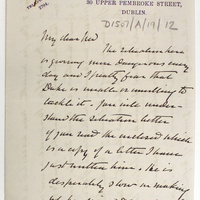 30 UPPER PEMBROKE STREET,
DUBLIN.
D1507/A/19/12
My dear Ned
The situation here
is growing more dangerous every
day and I really fear that
Duke is unable or unwilling to
tackle it. You will under-
stand the situation better
if you read the enclosed which
is a copy of a letter I have
just written him. He is
desperately slow in making